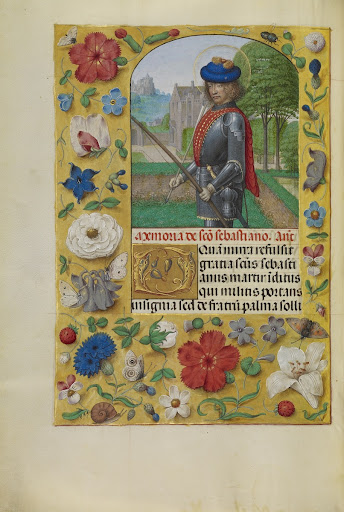 Memoria de sc̃o sebastiano. Añ
Quã mira refulsit
gratia sc̃us sebasti
anus martir iclitus
qui militis portans
insignia sed de fratrũ palma solli